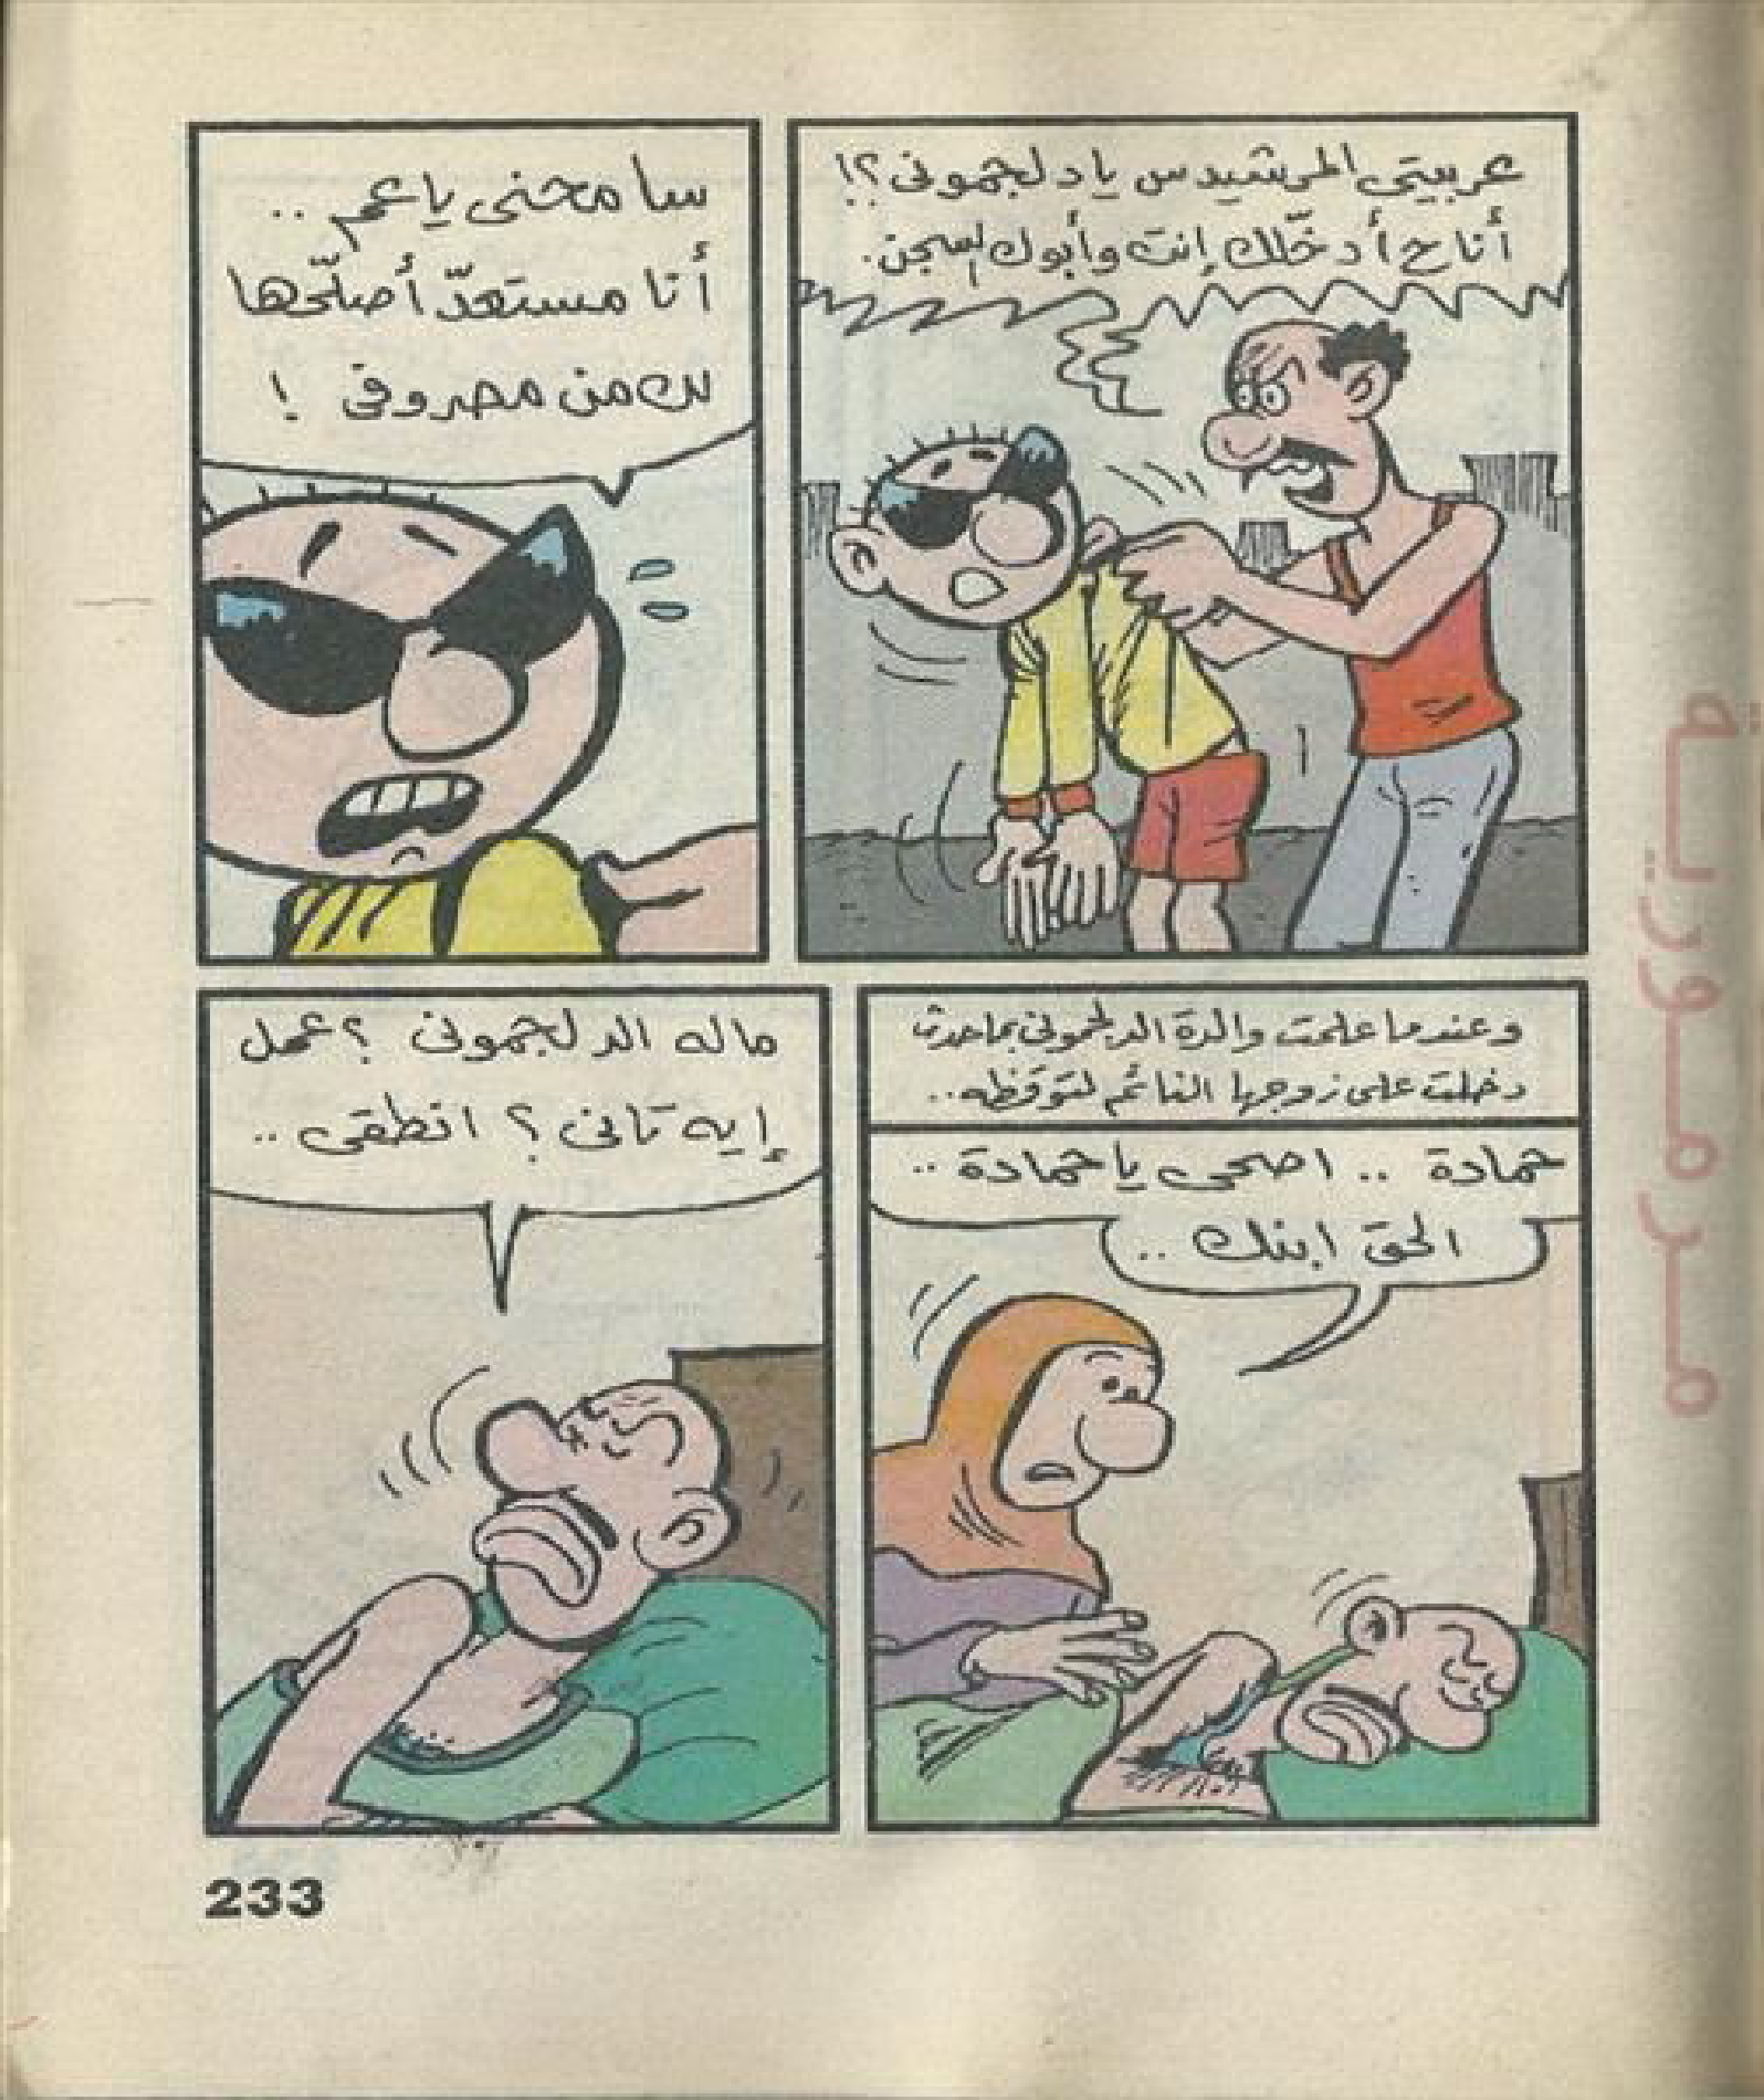 عربيتي المرشيدس يا دلجموني؟!
أنا ح أدخّلك إنت وأبوك السجن.
سامحنى ياعم ..
أنا مستعدّ أصلّحها
لك من مصروفى !
وعندما علمت والدة الدلجمونى بما حدث
دخلت على زوجها النائم لتوقظه..
حمادة .. اصحى يا حمادة ..
الحق ابنك ..
ماله الدلجمونى ؟ عمل
إيه تانى ؟ انطقى ..
233